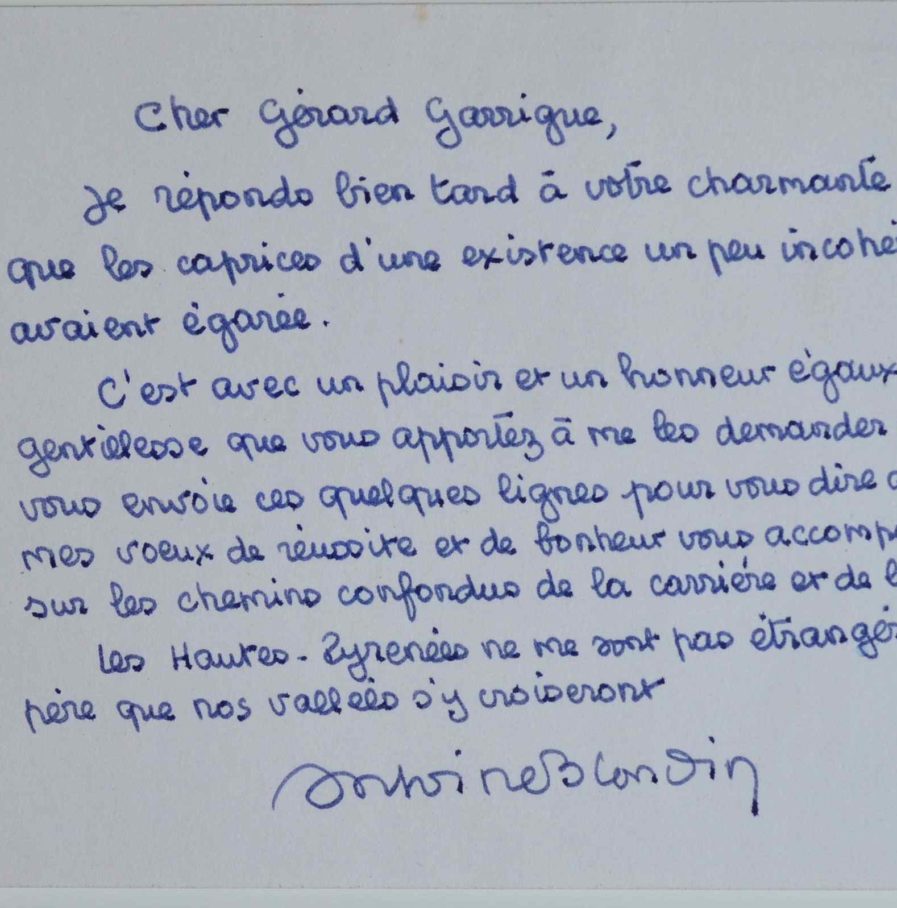 Cher Gérard Garrigue,
Je réponds bien tard à votre charmante
que les caprices d'une existence un peu incohé
avaient égarée.
C'est avec un plaisir et un honneur égaux
gentillesse que vous apportez à me les demander
vous envoie ces quelques lignes pour vous dire
mes voeux de réussite et de bonheur vous accomp
sur les chemins confondus de la carrière et de
Les Hautes-Pyrenées ne me sont pas étrangè
père que nos vallées s'y croiseront
Antoine Blondin